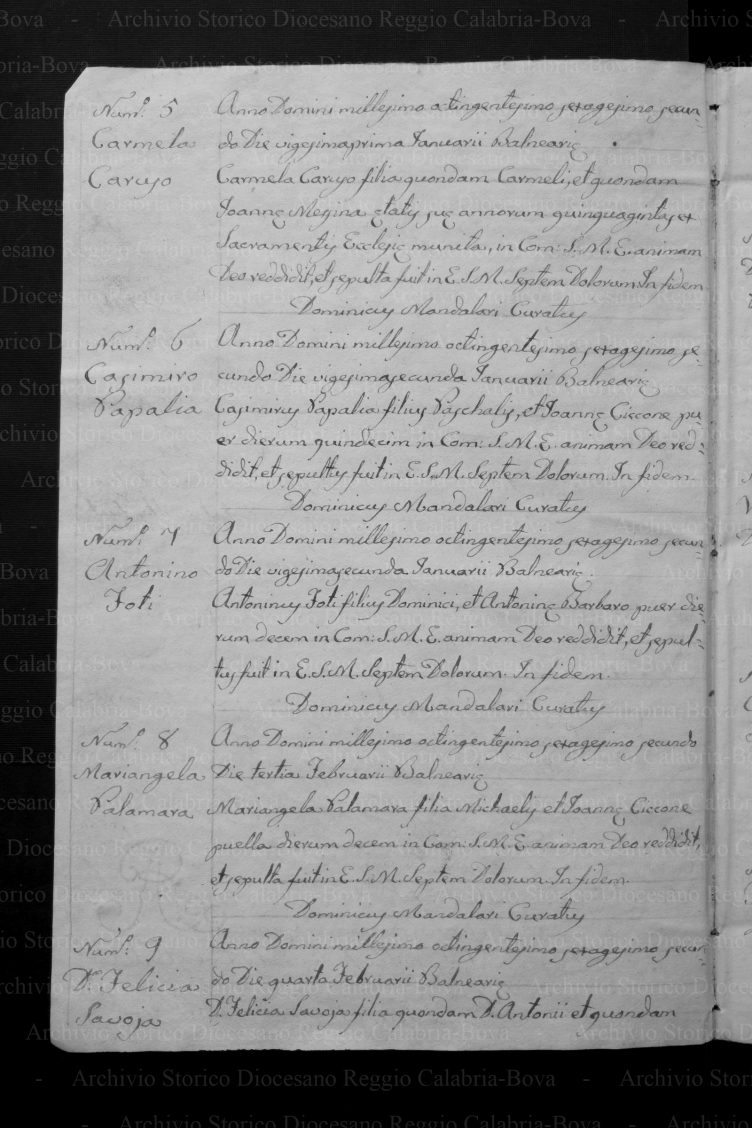 Num.° 5
Carmela
Caruso
Anno Domini millesimo octingentesimo sexagesimo secun=
do Die vigesimaprima Januarii Balnearię
Carmela Caruso filia quondam Carmeli, et quondam
Joannę Messina ętatis suę annorum quinquaginta, et
Sacramentis Ecclesię munita, in Com: S. M. E. animam
Deo reddidit, et sepulta fuit in E. S. M. Septem Dolorum. In fidem
Dominicus Mandalari Curatus
Num.° 6
Casimiro
Papalia
Anno Domini millesimo octingentesimo sexagesimo se=
cundo Die vigesimasecunda Januarii Balnearię
Casimirus Papalia filius Paschalis, et Joannę Ciccone pu=
er dierum quindecim in Com: S. M. E. animam Deo red=
didit, et sepultus fuit in E. S. M. Septem Dolorum. In fidem.
Dominicus Mandalari Curatus
Num.° 7
Antonino
Foti
Anno Domini millesimo octingentesimo sexagesimo secun=
do Die vigesimasecunda Januarii Balnearię.
Antoninus Foti filius Dominici, et Antoninę Barbaro puer die=
rum decem in Com: S. M. E. animam Deo reddidit, et sepul=
tus fuit in E. S. M. Septem Dolorum. In fidem.
Dominicus Mandalari Curatus
Num.° 8
Mariangela
Palamara
Anno Domini millesimo octingentesimo sexagesimo secundo
Die tertia Februarii Balnearię
Mariangela Palamara filia Michaelis et Joannę Ciccone
puella dierum decem in Com: S. M. E. animam Deo reddidit,
et sepulta fuit in E. S. M. Septem Dolorum. In fidem.
Dominicus Mandalari Curatus
Num.° 9
D. Felicia
Savoja
Anno Domini millesimo octingentesimo sexagesimo secun=
do Die quarta Februarii Balnearię
D. Felicia Savoja filia quondam D. Antonii et quondam
Archivio Storico Diocesano Reggio Calabria-Bova